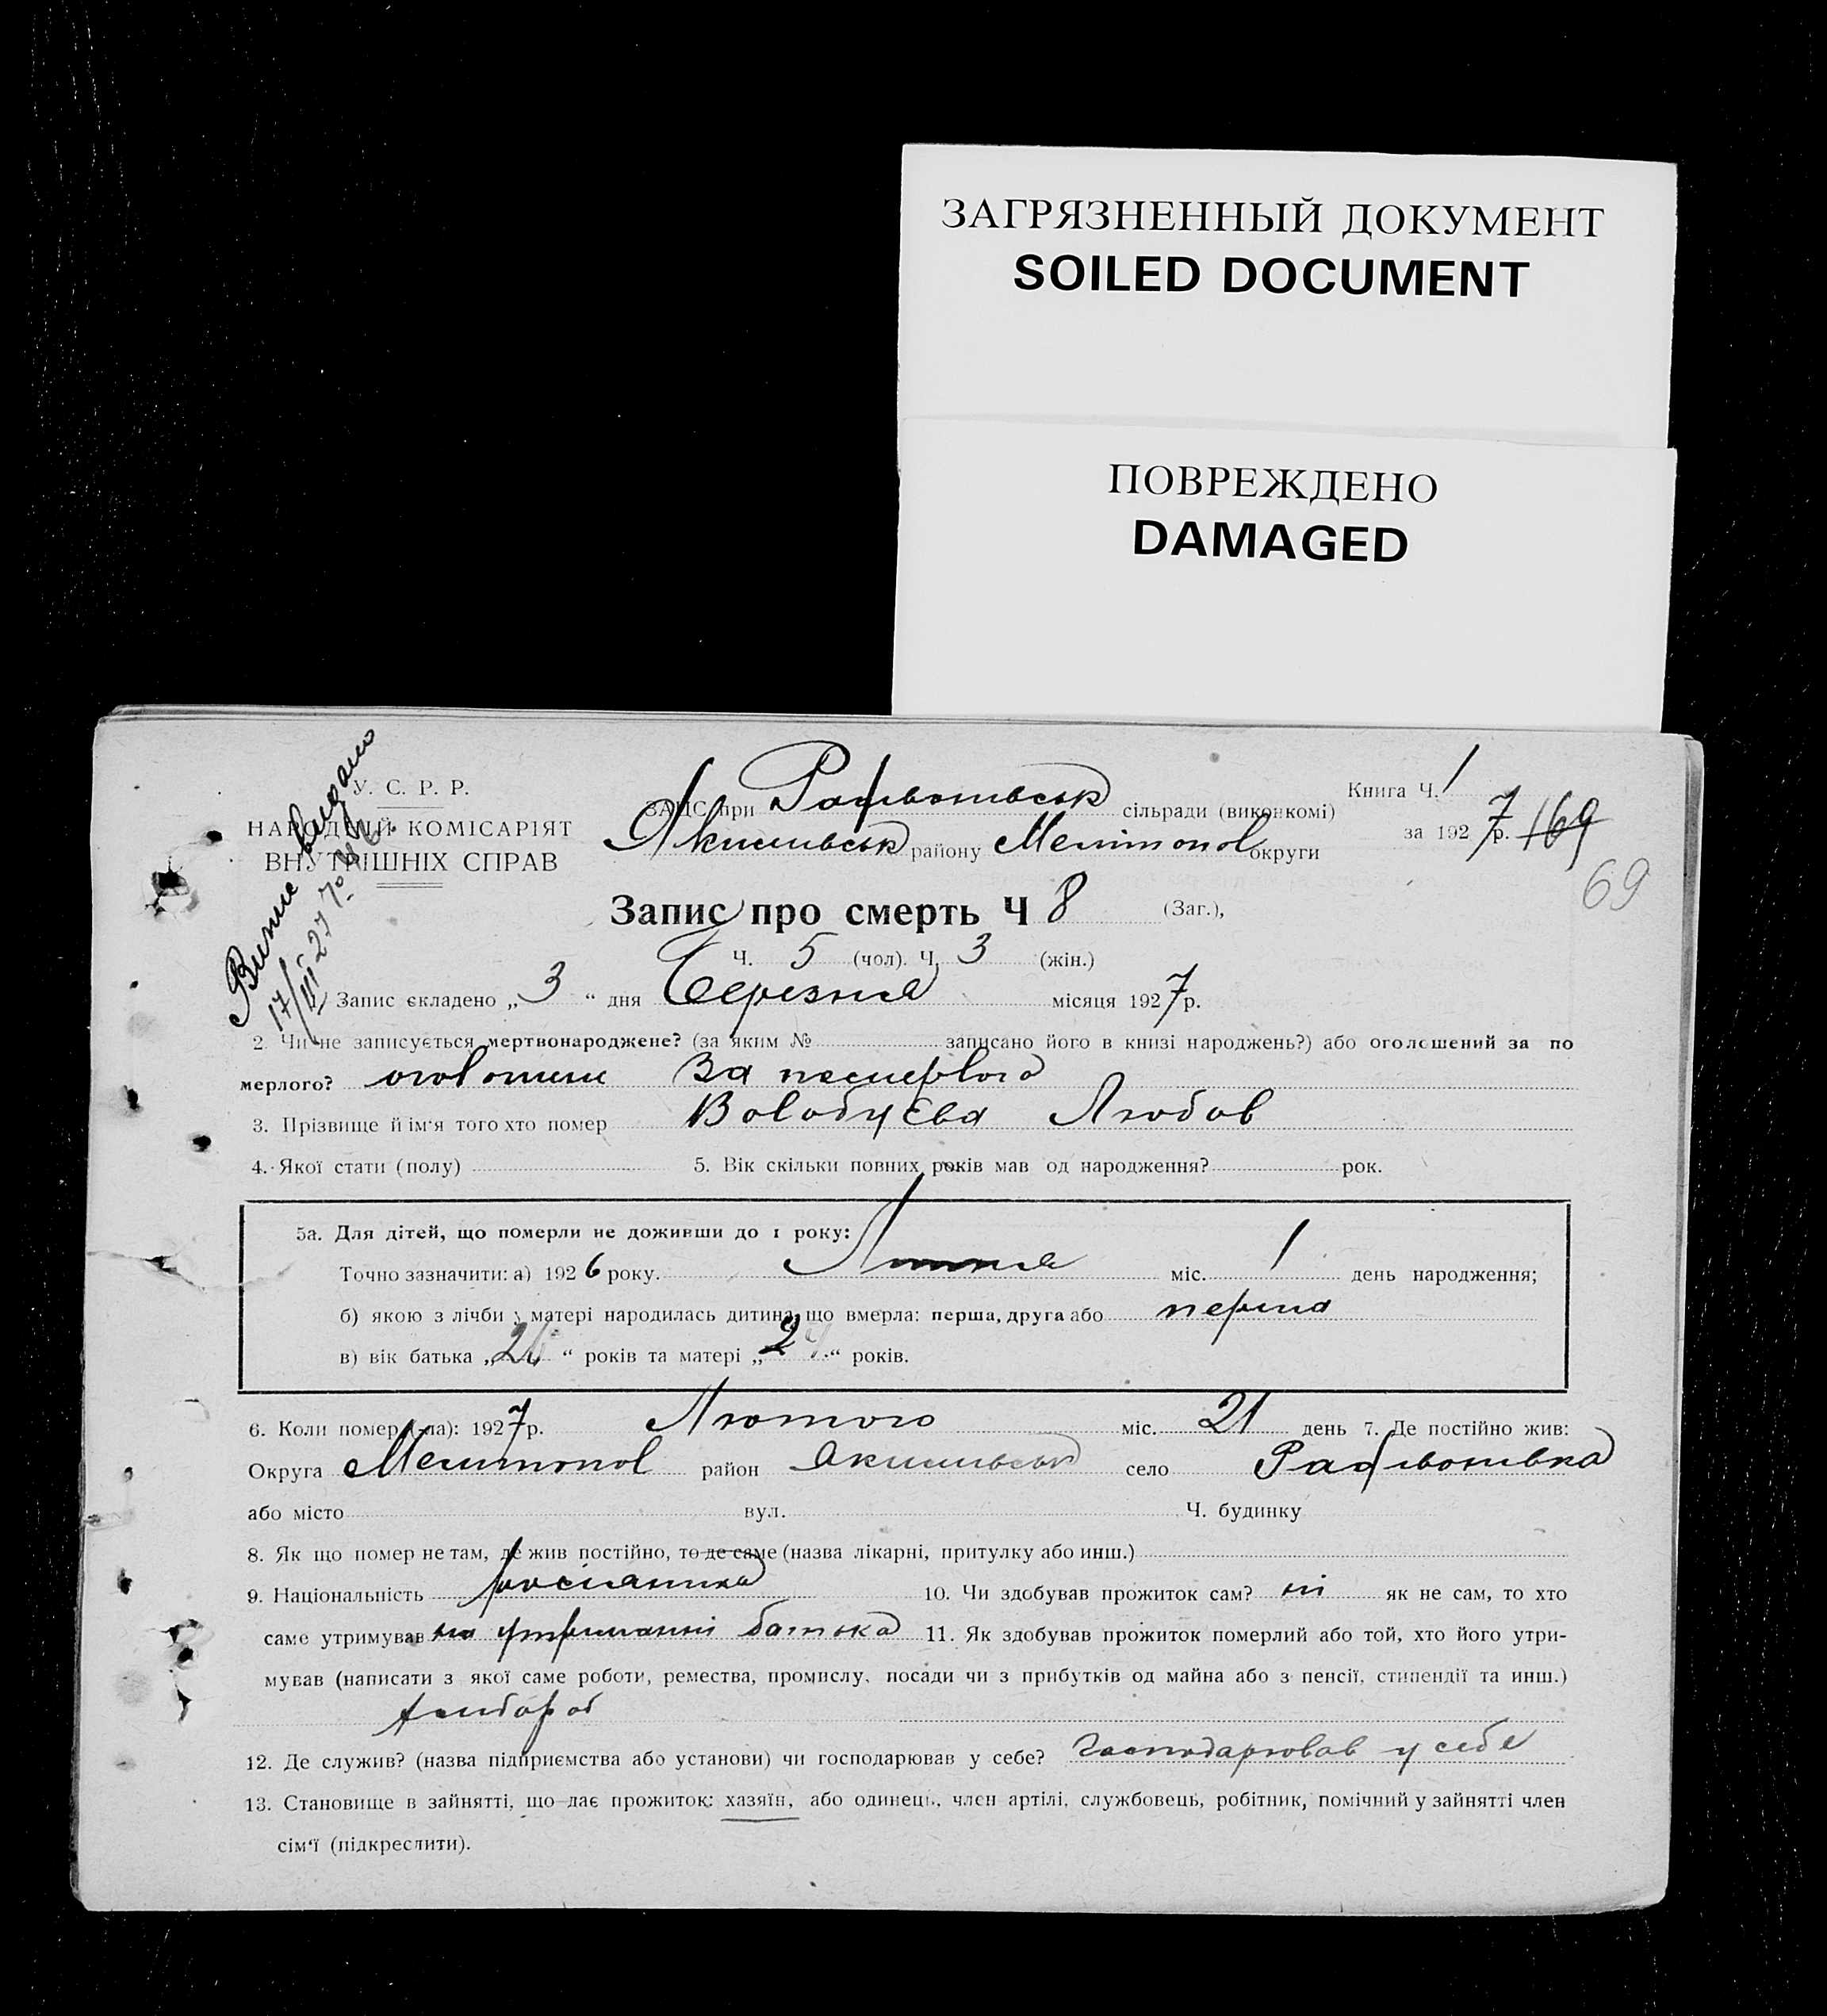 ЗАГРЯЗНЕННЫЙ ДОКУМЕНТ
SOILED DOCUMENT
ПОВРЕЖДЕНО
DAMAGED
У. С. Р. Р.
НАРОДНІЙ КОМІСАРІЯТ
ВНУТРІШНІХ СПРАВ
Книга Ч. 1
за 1927 р. 169
69
ЗАГС при сільради (виконкомі)
району Мелитопол округи
Запис про смерть Ч 8 (Заг.),
Ч. 5 (чол). Ч. 3 (жін.)
Запис складено „3“ дня Березня місяця 1927 р.
2. Чи не записується мертвонароджене? (за яким № записано його в книзі народжень?) або оголошений за по
мерлого? За
3. Прізвище й ім'я того хто помер Любов
4. Якої стати (полу) 5. Вік скільки повних років мав од народження? рок.
5а. Для дітей, що померли не доживши до 1 року:
Точно зазначити: а) 1926 року. міс. 1 день народження;
б) якою з лічби у матері народилась дитина, що вмерла: перша, друга або перша
в) вік батька „ “ років та матері „ “ років.
6. Коли помер (-ла): 1927 р. Лютого міс. 21 день 7. Де постійно жив:
Округа Мелитопол район село
або місто вул. Ч. будинку
8. Як що помер не там, де жив постійно, то де саме (назва лікарні, притулку або инш.)
9. Національність росіянина 10. Чи здобував прожиток сам? ні як не сам, то хто
саме утримував на утриманні батька 11. Як здобував прожиток померлий або той, хто його утри-
мував (написати з якої саме роботи, ремества, промислу, посади чи з прибутків од майна або з пенсії, стипендії та инш.)
хлібороб
12. Де служив? (назва підприємства або установи) чи господарював у себе? Господарював у себе
13. Становище в зайнятті, що дає прожиток: хазяїн, або одинець, член артілі, службовець, робітник, помічний у зайнятті член
сім'ї (підкреслити).